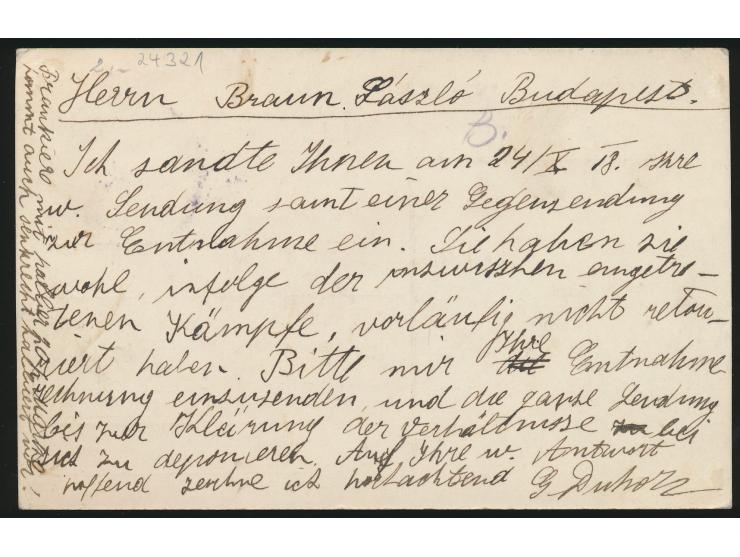 2,- 24321
Herrn Braun László Budapest.
B.
Ich sandte Ihnen am 24/X 18. Ihre
w. Sendung samt einer Gegensendung
zur Entnahme ein. Sie haben sie
wohl, infolge der inzwischen eingetre-
tenen Kämpfe, vorläufig nicht retou-
niert haben. Bitte mir Ihre Entnahme
rechnung einzusenden und die ganze Sendung
bis zur Klärung der Verhältnisse bei
sich zu deponieren. Auf Ihre w. Antwort
hoffend zeichne ich hochachtend G. Duhorz
Frankiere mit
kommt auch senkrecht halbiert vor!